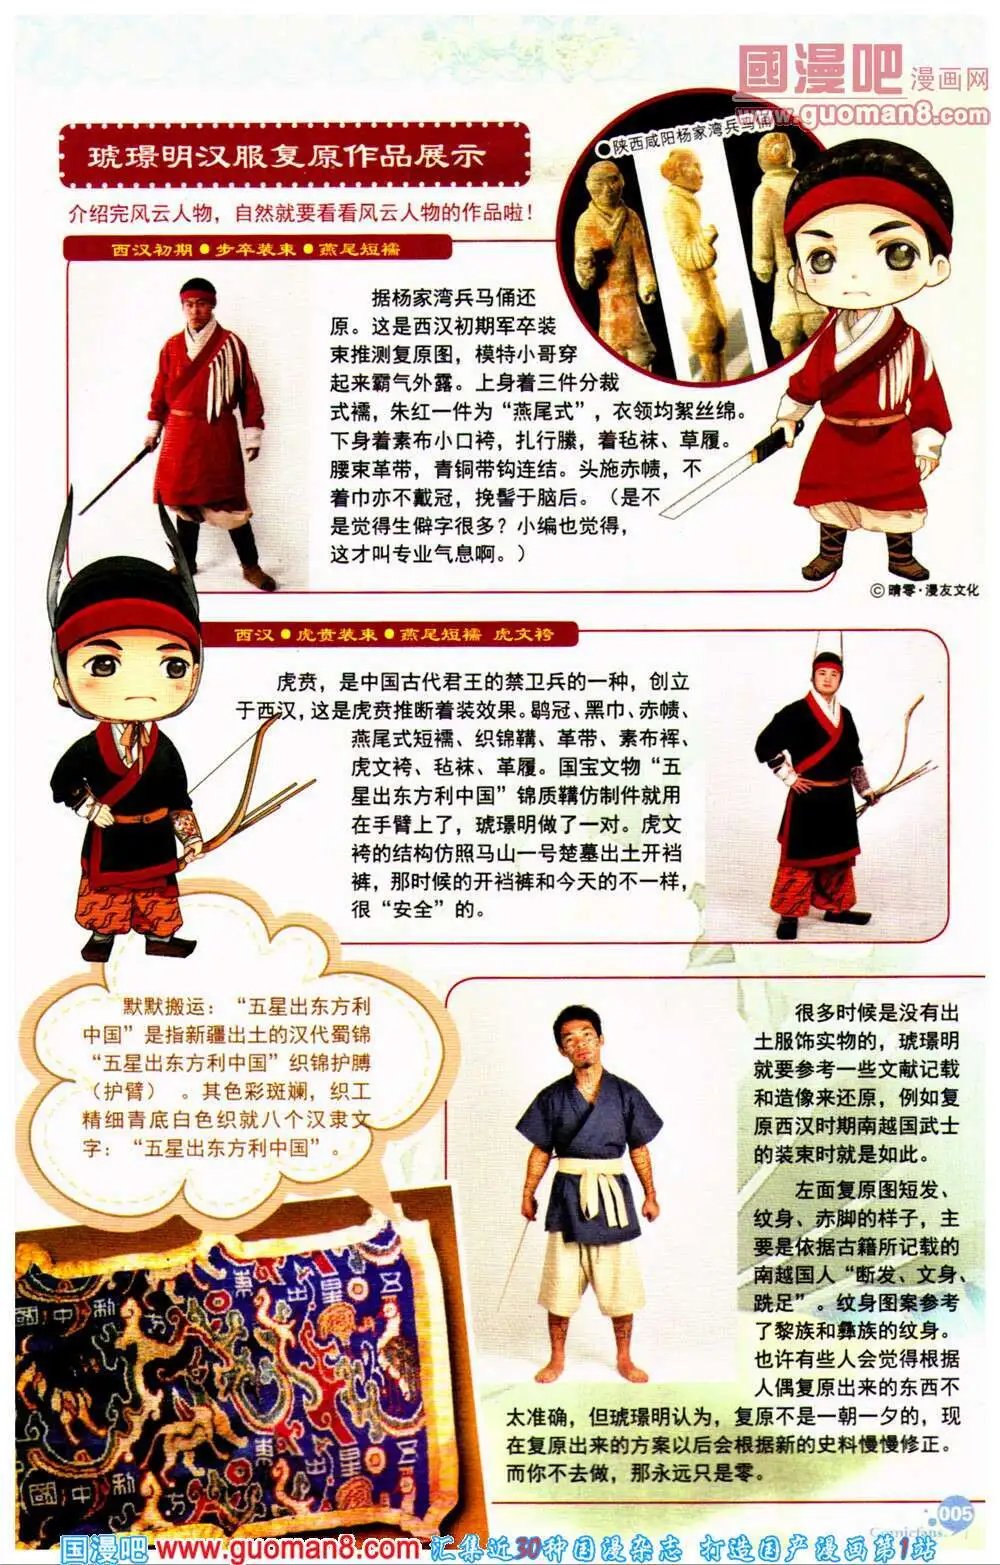 國漫吧漫画网
www.guoman8.com
陕西咸阳杨家湾兵马俑
琥璟明汉服复原作品展示
介绍完风云人物，自然就要看看风云人物的作品啦！
西汉初期●步卒装束●燕尾短襦
据杨家湾兵马俑还
原。这是西汉初期军卒装
束推测复原图，模特小哥穿
起来霸气外露。上身着三件分裁
式襦，朱红一件为“燕尾式”，衣领均絮丝绵。
下身着素布小口袴，扎行縢，着毡袜、草履。
腰束革带，青铜带钩连结。头施赤帻，不
着巾亦不戴冠，挽髻于脑后。（是不
是觉得生僻字很多？小编也觉得，
这才叫专业气息啊。）
©晴零·漫友文化
西汉●虎贲装束●燕尾短襦 虎文袴
虎贲，是中国古代君王的禁卫兵的一种，创立
于西汉，这是虎贲推断着装效果。鹖冠、黑巾、赤帻、
燕尾式短襦、织锦鞲、革带、素布裈、
虎文袴、毡袜、革履。国宝文物“五
星出东方利中国”锦质鞲仿制件就用
在手臂上了，琥璟明做了一对。虎文
袴的结构仿照马山一号楚墓出土开裆
裤，那时候的开裆裤和今天的不一样，
很“安全”的。
默默搬运：“五星出东方利
中国”是指新疆出土的汉代蜀锦
“五星出东方利中国”织锦护膊
（护臂）。其色彩斑斓，织工
精细青底白色织就八个汉隶文
字：“五星出东方利中国”。
很多时候是没有出
土服饰实物的，琥璟明
就要参考一些文献记载
和造像来还原，例如复
原西汉时期南越国武士
的装束时就是如此。
左面复原图短发、
纹身、赤脚的样子，主
要是依据古籍所记载的
南越国人“断发、文身、
跣足”。纹身图案参考
了黎族和彝族的纹身。
也许有些人会觉得根据
人偶复原出来的东西不
太准确，但琥璟明认为，复原不是一朝一夕的，现
在复原出来的方案以后会根据新的史料慢慢修正。
而你不去做，那永远只是零。
國中利東出星五
國中方
Comicfans
005
国漫吧 www.guoman8.com 汇集近30种国漫杂志 打造国产漫画第1站